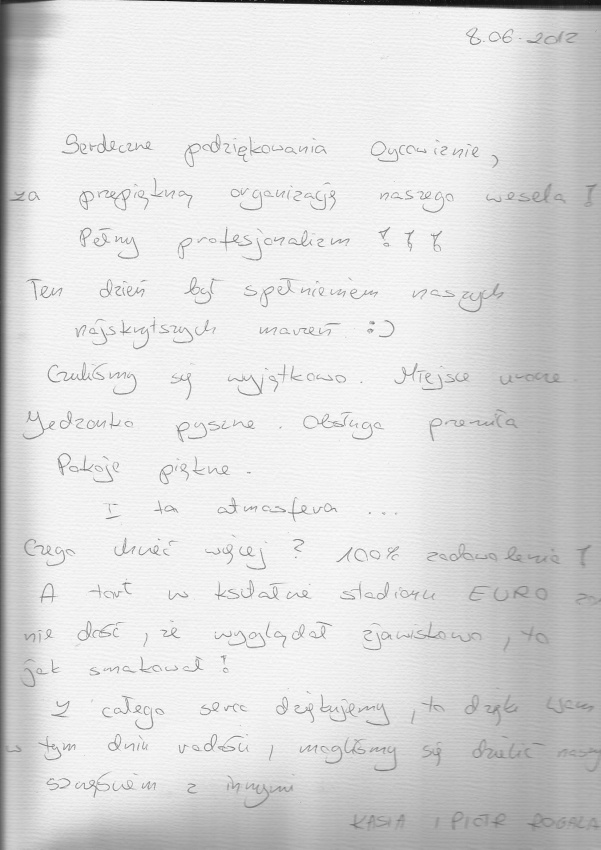 8.06.2012
Serdeczne podziękowania Ojcowiźnie,
za przepiękną organizację naszego wesela!
Pełny profesjonalizm !!!
Ten dzień był spełnieniem naszych
najskrytszych marzeń :)
Czuliśmy się wyjątkowo. Miejsce urocze.
Jedzonko pyszne. Obsługa przemiła
Pokoje piękne.
I ta atmosfera ...
Czego chcieć więcej? 100% zadowolenia!
A tort w kształcie stadionu EURO
nie dość, że wyglądał zjawiskowo, to
jak smakował!
Z całego serca dziękujemy, to dzięki Wam
w tym dniu radości, mogliśmy się dzielić
szczęściem z innymi
KASIA I PIOTR ROGALA